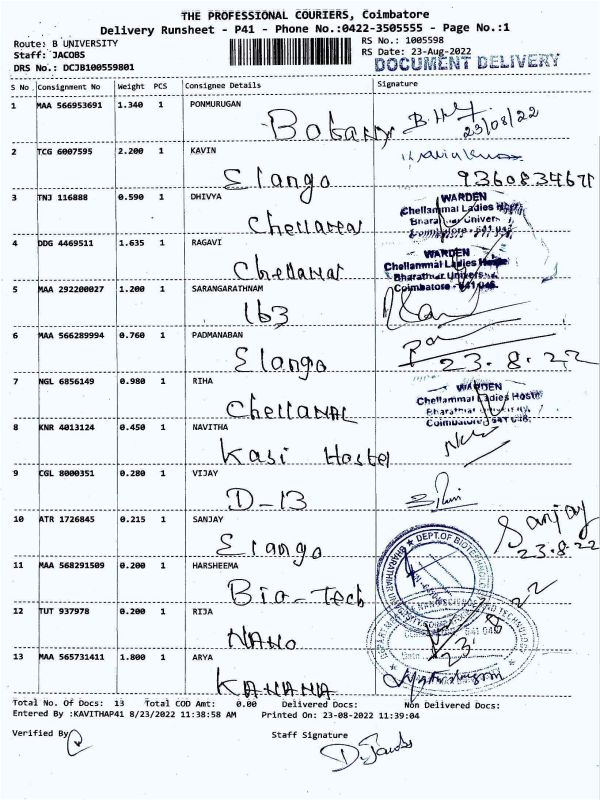 THE PROFESSIONAL COURIERS, Coimbatore
Delivery Runsheet - P41 - Phone No.:0422-3505555 - Page No.:1
Route: B UNIVERSITY RS No.: 1005598
Staff: JACOBS RS Date: 23-Aug-2022
DRS No.: DCJB100559801 DOCUMENT DELIVERY
S No. Consignment No Weight PCS Consignee Details Signature
1 MAA 566953691 1.340 1 PONMURUGAN
Botany 23/08/22
2 TCG 6007595 2.200 1 KAVIN
Elango 9360834671
3 TNJ 116888 0.590 1 DHIVYA WARDEN
Chellammal Ladies
Chellamal
4 DDG 4469511 1.635 1 RAGAVI WARDEN
Chellammal Ladies
Chellamal Bharathiar
5 MAA 292200027 1.200 1 SARANGARATHNAM Coimbatore - 641 046
163
6 MAA 566289994 0.760 1 PADMANABAN
Elango 23.8.22
7 NGL 6856149 0.980 1 RIHA WARDEN
Chellammal Ladies Hostel
Chellamal Bharathiar
8 KNR 4013124 0.450 1 NAVITHA
Kasi Hostel
9 CGL 8000351 0.280 1 VIJAY
D-13
10 ATR 1726845 0.215 1 SANJAY Sanjay
Elango 23.8.22
11 MAA 568291509 0.200 1 HARSHEEMA DEPT.OF BIOTECHNOLOGY
Bio-Tech
12 TUT 937978 0.200 1 RIJA
NANO 23 8 22
13 MAA 565731411 1.800 1 ARYA
KANANA
Total No. Of Docs: 13 Total COD Amt: 0.00 Delivered Docs: Non Delivered Docs:
Entered By :KAVITHAP41 8/23/2022 11:38:58 AM Printed On: 23-08-2022 11:39:04
Verified By Staff Signature
D. Jacobs